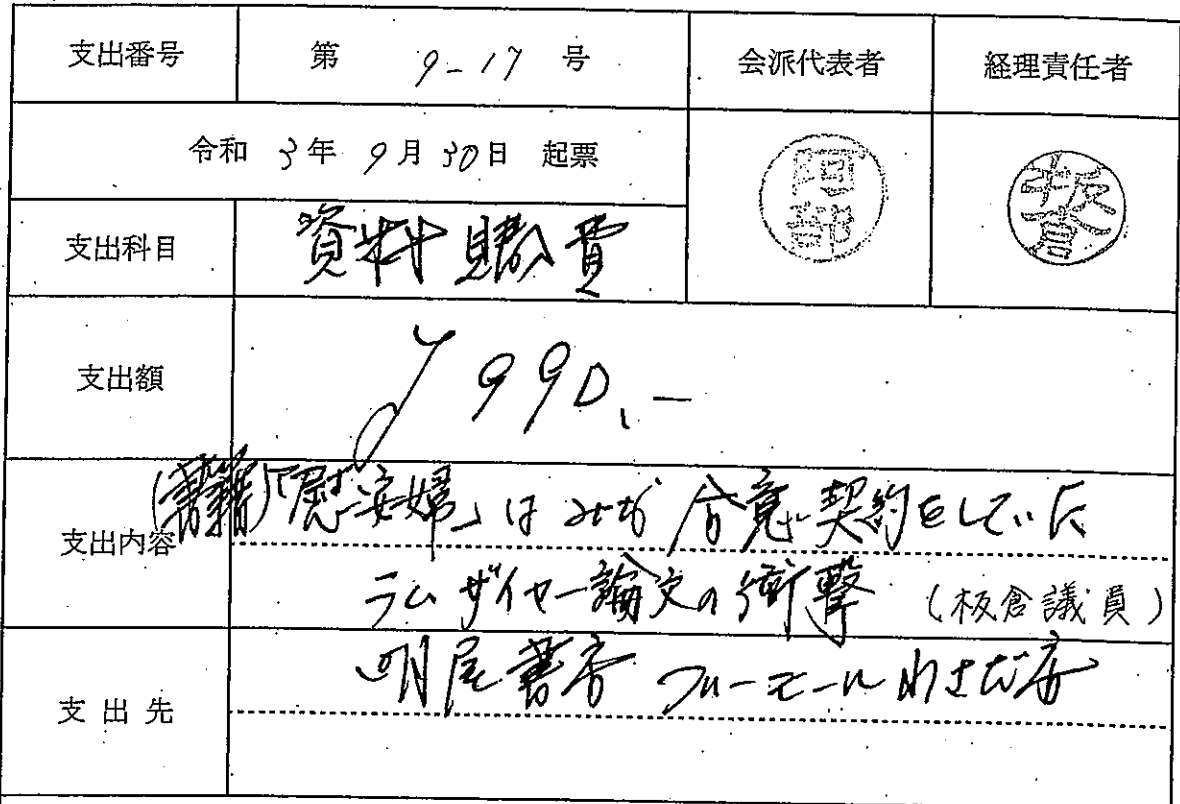 支出番号 第 9-17 号 会派代表者 経理責任者
令和 3年 9月 30日 起票
阿部
板倉
支出科目 資料購入費
支出額 ¥990.-
支出内容 (書籍)「慰安婦」はみな合意契約をしていた
ラムザイヤー論文の衝撃 (板倉議員)
支出先 明屋書店 フレーモールわさだ店